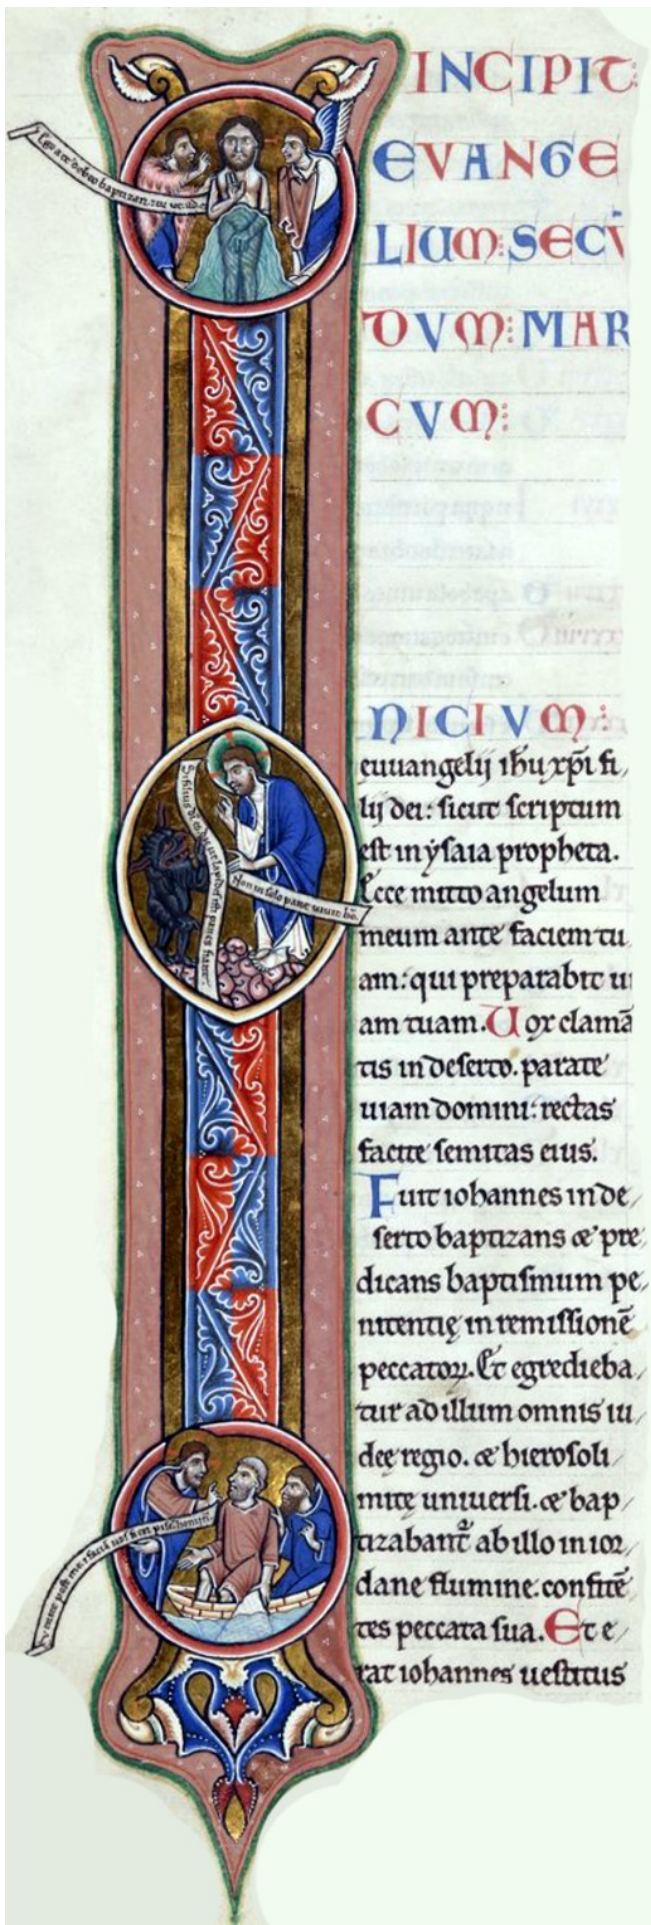 INCIPIT
EVANGE
LIUM: SECŪ
DVM: MAR
CVM:
NICIVM:
euuangelij ihu xp̄i fi,
lij dei: sicut scriptum
est in ẏsaia propheta.
Ecce mitto angelum
meum ante faciem tu,
am: qui preparabit ui
am tuam. Vox clamā
tis in deserto. parate
uiam domini: rectas
facite semitas eius.
Fuit iohannes in de,
serto baptizans & pre,
dicans baptismum pe,
nitentię in remissionē
peccatoꝝ. Et egredieba,
tur ad illum omnis iu,
deę regio. & hierosoli,
mitę uniuersi. & bap,
tizabant᷑ ab illo in ior,
dane flumine. confitē
tes peccata sua. Et e,
rat iohannes uestitus
Ego a te debeo baptizari. tu uenis ad
Si filius di es dic ut lapides isti panes fiant.
Non in solo pane uiuit ho.
Venite post me. faciā uos fieri pisc hominū.